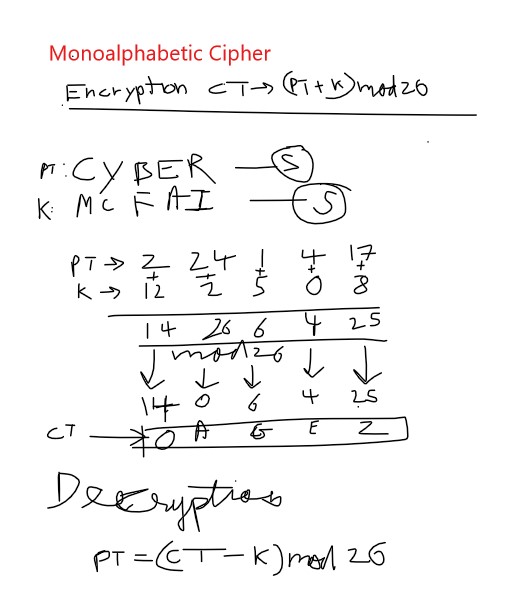 Monoalphabetic Cipher
Encryption CT → (PT + K) mod 26
PT: CYBER — S
K: MCFAI — S
PT → 2 24 1 4 17
+ + + + +
K → 12 2 5 0 8
14 26 6 4 25
mod 26
14 0 6 4 25
CT → O A G E Z
Decryption
PT = (CT - K) mod 26